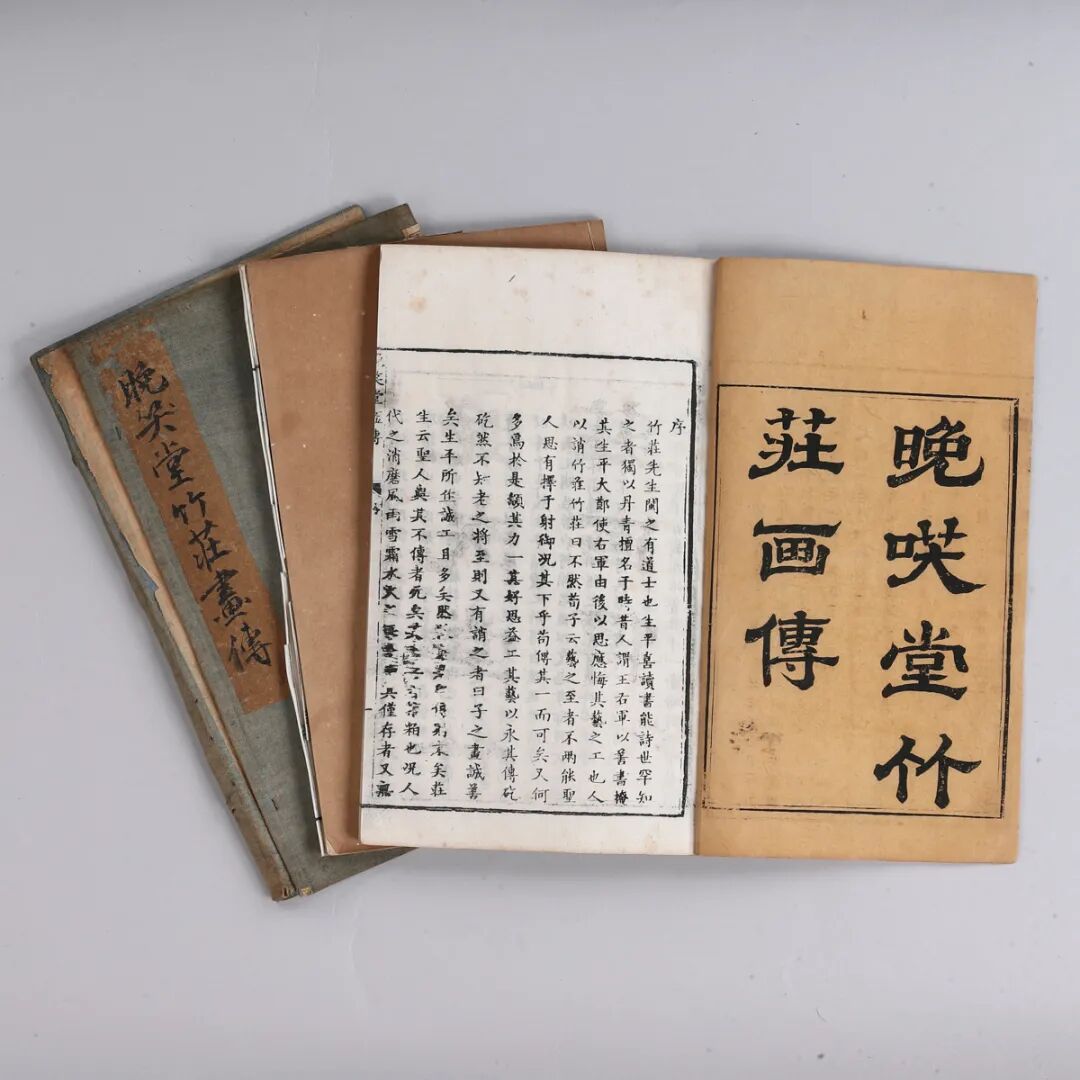 晚咲堂竹
莊画傳
序
竹莊先生閩之有道士也生平喜讀書能詩世罕知
之者獨以丹青擅名于時昔人謂王右軍以善書掩
其生平大鄭使右軍由後以思應悔其藝之工也人
以誚竹莊竹莊曰不然荀子云藝之至者不兩能聖
人思有擇于射御况其下乎苟傳其一而可矣又何
多爲於是顓其力一其好思益工其藝以永其傳矻
矻然不知老之將至則又有誚之者曰子之畫誠善
矣生平所作誠工且多矣然
傳則未矣莊
生云聖人與其不傳者死矣
粕也况人
代之消磨風雨雪霜水火之
具僅存者又無
晚笑堂竹莊畫傳